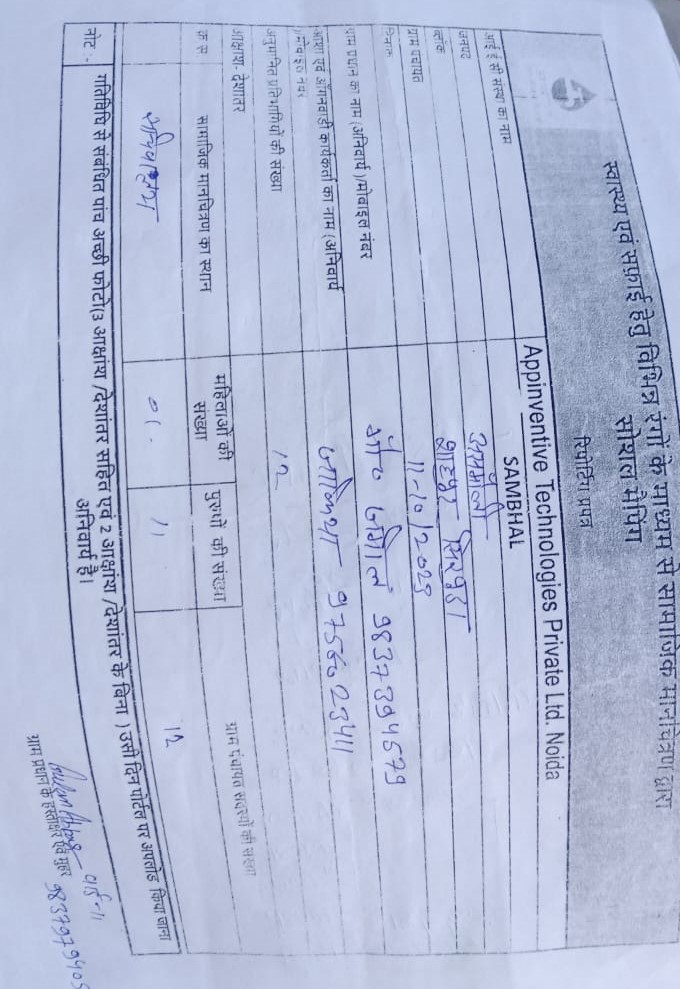 स्वास्थ्य एवं सफ़ाई हेतु विभिन्न रंगों के माध्यम से सामाजिक मानचित्रण द्वारा
सोशल मैपिंग
रिपोर्टिंग प्रपत्र
आई ई सी संस्था का नाम Appinventive Technologies Private Ltd. Noida
जनपद SAMBHAL
ब्लॉक असमोली
ग्राम पंचायत शाहपुर सिरपुड़ा
दिनांक 11-10/2023
ग्राम प्रधान का नाम (अनिवार्य)/मोबाइल नंबर मौ० 9837394579
आशा एवं आँगनवाड़ी कार्यकर्ता का नाम (अनिवार्य
)/मोबाइल नंबर 9756023411
अनुमानित प्रतिभागियों की संख्या 12
अक्षांश/ देशांतर
क्र.स. सामाजिक मानचित्रण का स्थान महिलाओं की संख्या पुरुषों की संख्या ग्राम पंचायत सदस्यों की संख्या
01. 11 12
नोट :- गतिविधि से संबंधित पांच अच्छी फोटो(3 आक्षांश /देशांतर सहित एवं 2 आक्षांश /देशांतर के बिना ) उसी दिन पोर्टल पर अपलोड किया जाना
अनिवार्य है।
ग्राम प्रधान के हस्ताक्षर एवं मुहर